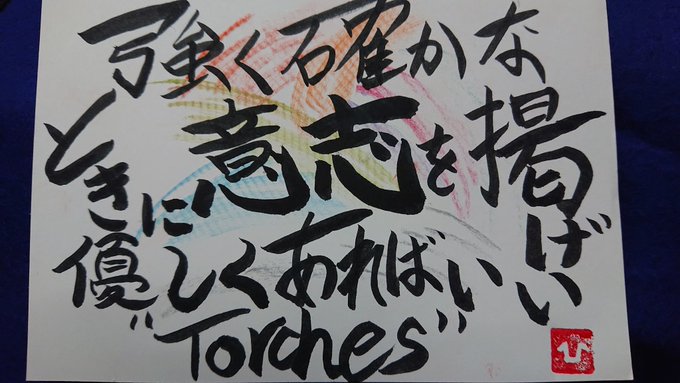 強く確かな
意志を掲げ
ときに
優しくあればいい
"Torches"
ひ